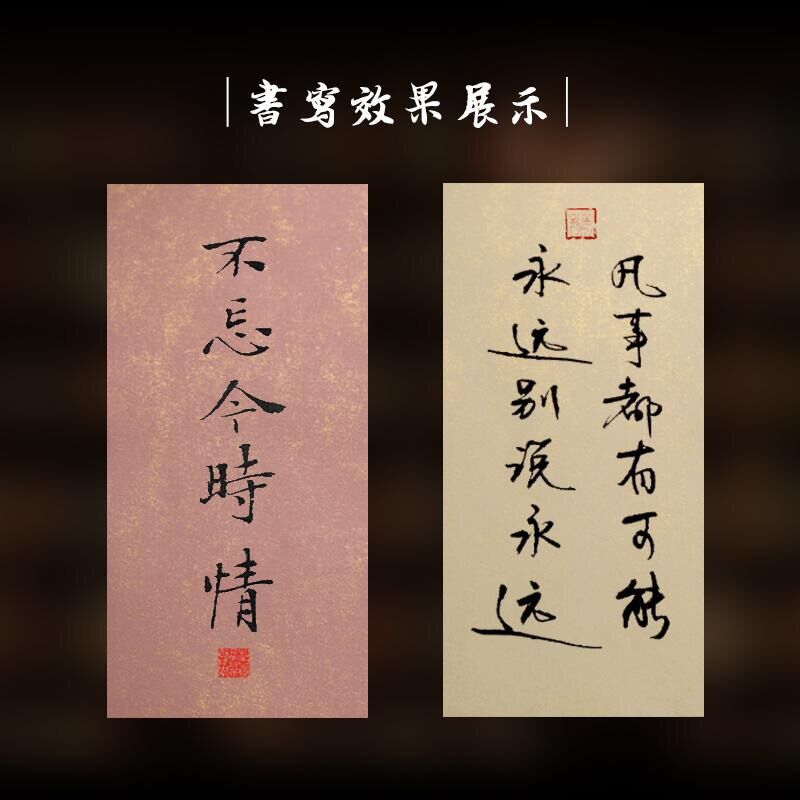 書寫效果展示
不忘今時情
凡事都有可能
永远别说永远